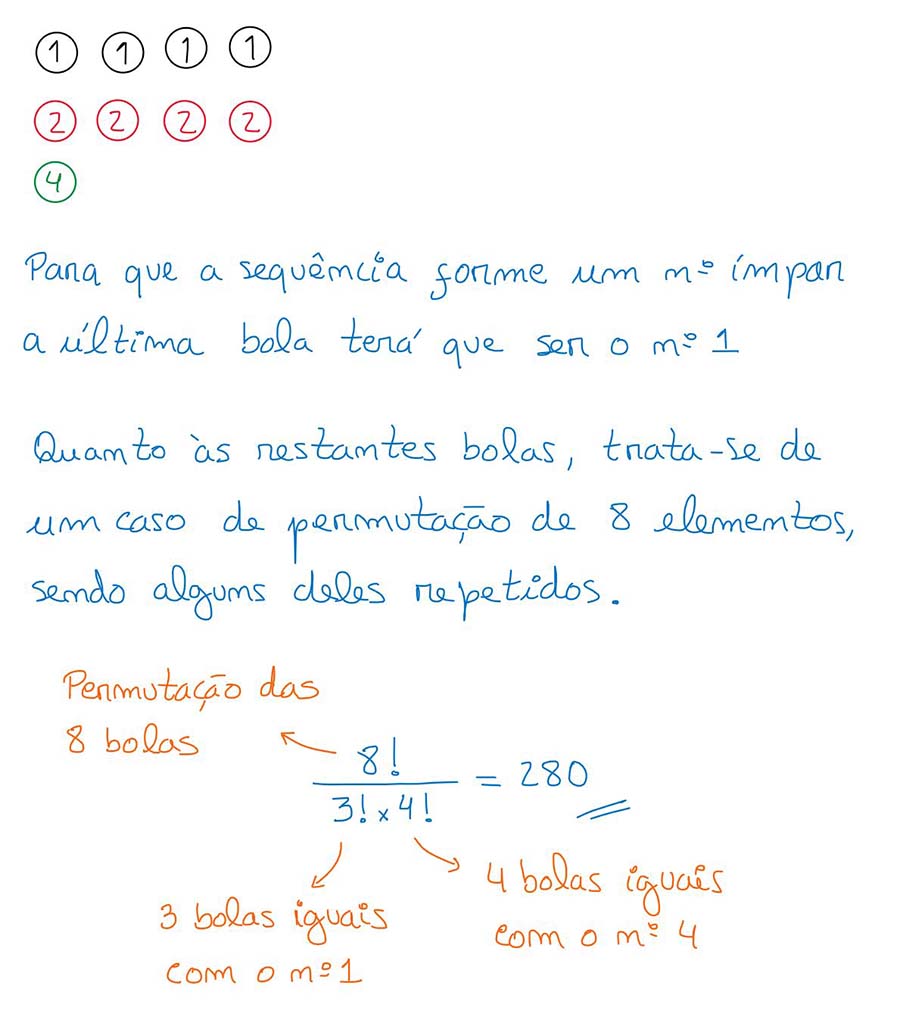 1 1 1 1
2 2 2 2
4
Para que a sequência forme um nº ímpar
a última bola terá que ser o nº 1
Quanto às restantes bolas, trata-se de
um caso de permutação de 8 elementos,
sendo alguns deles repetidos.
Permutação das
8 bolas
8!
3! × 4!
= 280
4 bolas iguais
com o nº 4
3 bolas iguais
com o nº 1